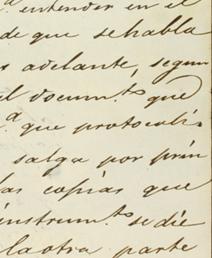 entender en el
de que se habla
adelante, segun
el documto que
a que protocoli-
salga por prin
las copias que
instrumto se die
la otra parte